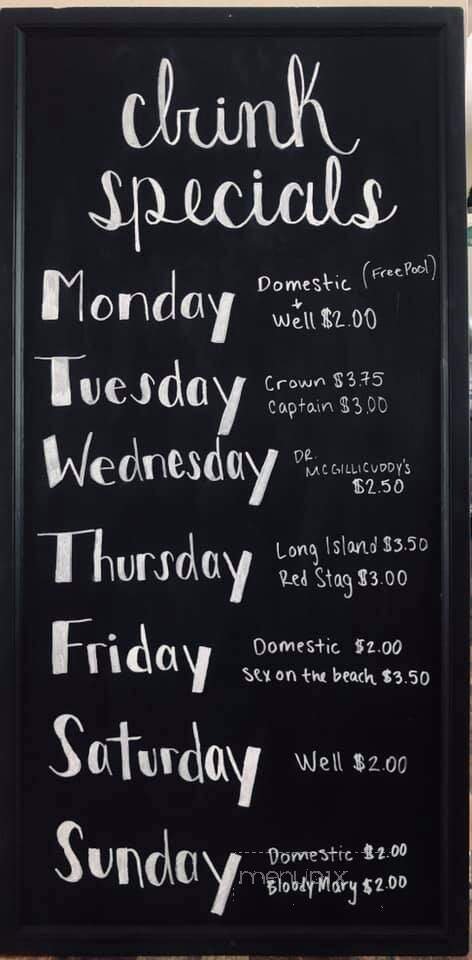 drink
specials
Monday
Domestic (Free Pool)
+
Well $2.00
Tuesday
Crown $3.75
Captain $3.00
Wednesday
DR.
MCGILLICUDDY'S
$2.50
Thursday
Long Island $3.50
Red Stag $3.00
Friday
Domestic $2.00
Sex on the beach $3.50
Saturday
Well $2.00
Sunday
Domestic $2.00
Bloody Mary $2.00
menupix